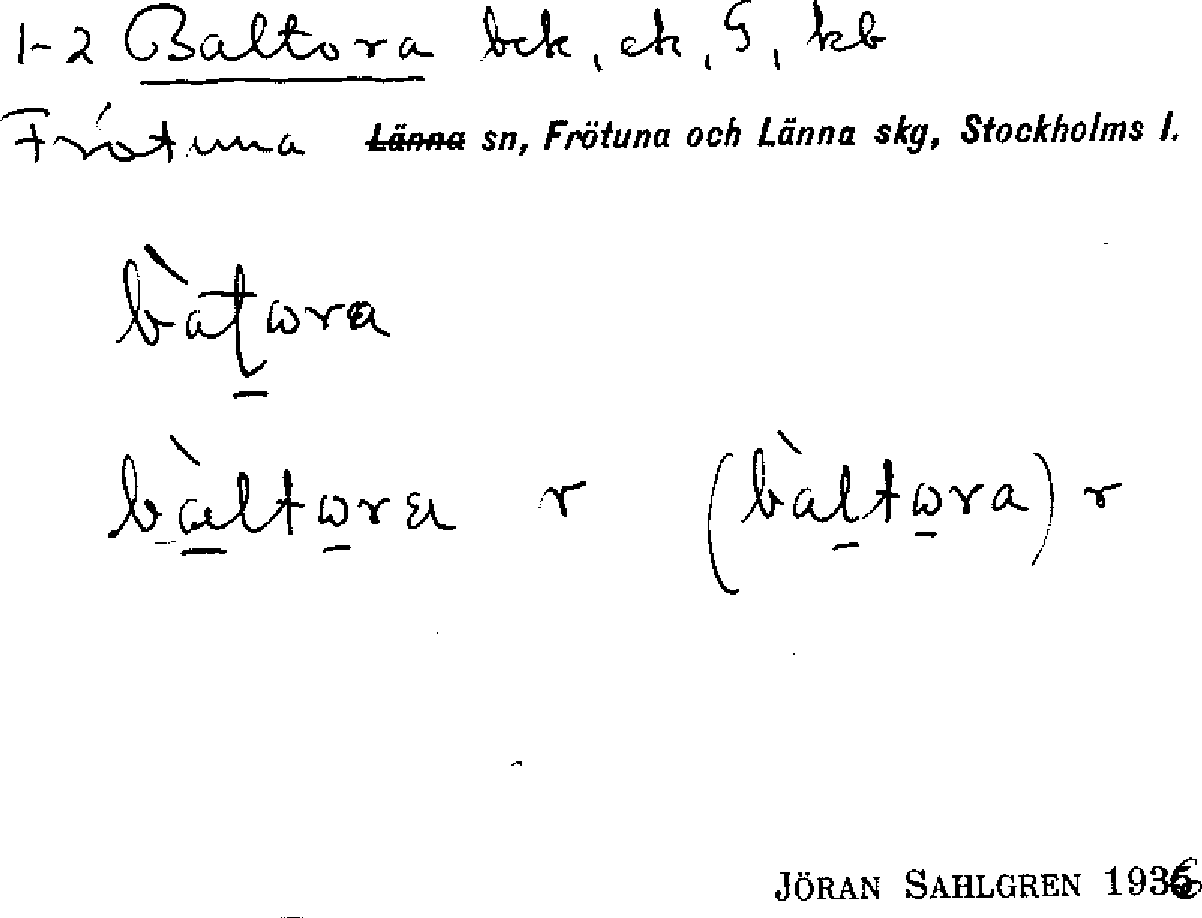 1-2 Baltora bck, ek, G, kb
Frötuna ~~Länna~~ sn, Frötuna och Länna skg, Stockholms l.
bàʈωra
bàltωra r (bàltωra) r
JÖRAN SAHLGREN 1936